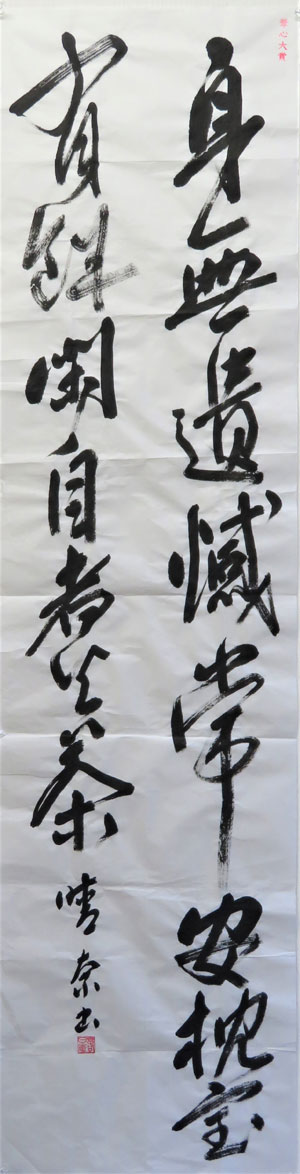 身無遺憾常安枕室
有餘閑自煮茶
晴奈書